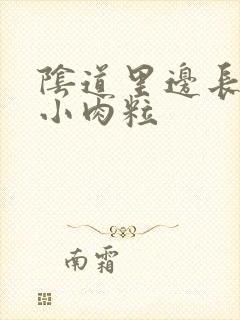 陰道里邊長
小肉粒
南霜